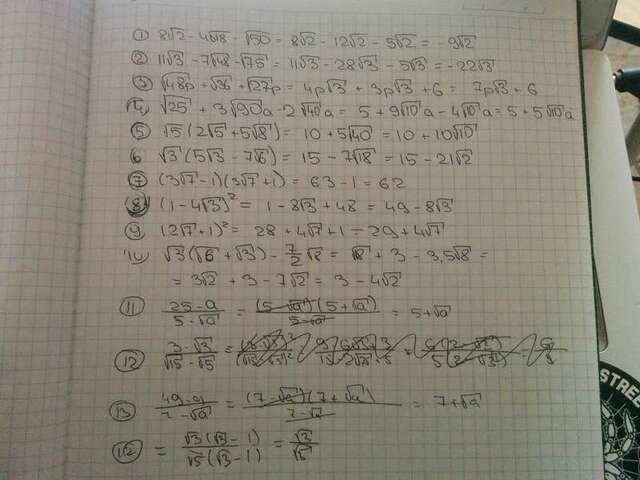 ① 8√2 - 4√18 - √50 = 8√2 - 12√2 - 5√2 = -9√2
② 11√3 - 7√48 - √75 = 11√3 - 28√3 - 5√3 = -22√3
③ √48p + √36 + √27p = 4p√3 + 3p√3 + 6 = 7p√3 + 6
④ √25 + 3√90a - 2√40a = 5 + 9√10a - 4√10a = 5 + 5√10a
⑤ √5(2√5 + 5√8) = 10 + 5√40 = 10 + 10√10
6 √3(5√3 - 7√6) = 15 - 7√18 = 15 - 21√2
⑦ (3√7 - 1)(3√7 + 1) = 63 - 1 = 62
⑧ (1 - 4√3)² = 1 - 8√3 + 48 = 49 - 8√3
⑨ (2√7 + 1)² = 28 + 4√7 + 1 = 29 + 4√7
10 √3(√6 + √3) - 7/2 √8 = √18 + 3 - 3,5√8 =
= 3√2 + 3 - 7√2 = 3 - 4√2
⑪ (25 - a)/(5 - √a) = (5 - √a)(5 + √a)/(5 - √a) = 5 + √a
⑫ (3 - √3)/(√15 - √5) =
⑬ (49 - a)/(7 - √a) = (7 - √a)(7 + √a)/(7 - √a) = 7 + √a
⑫ = √3(√3 - 1)/(√5(√3 - 1)) = √3/√5
STREE